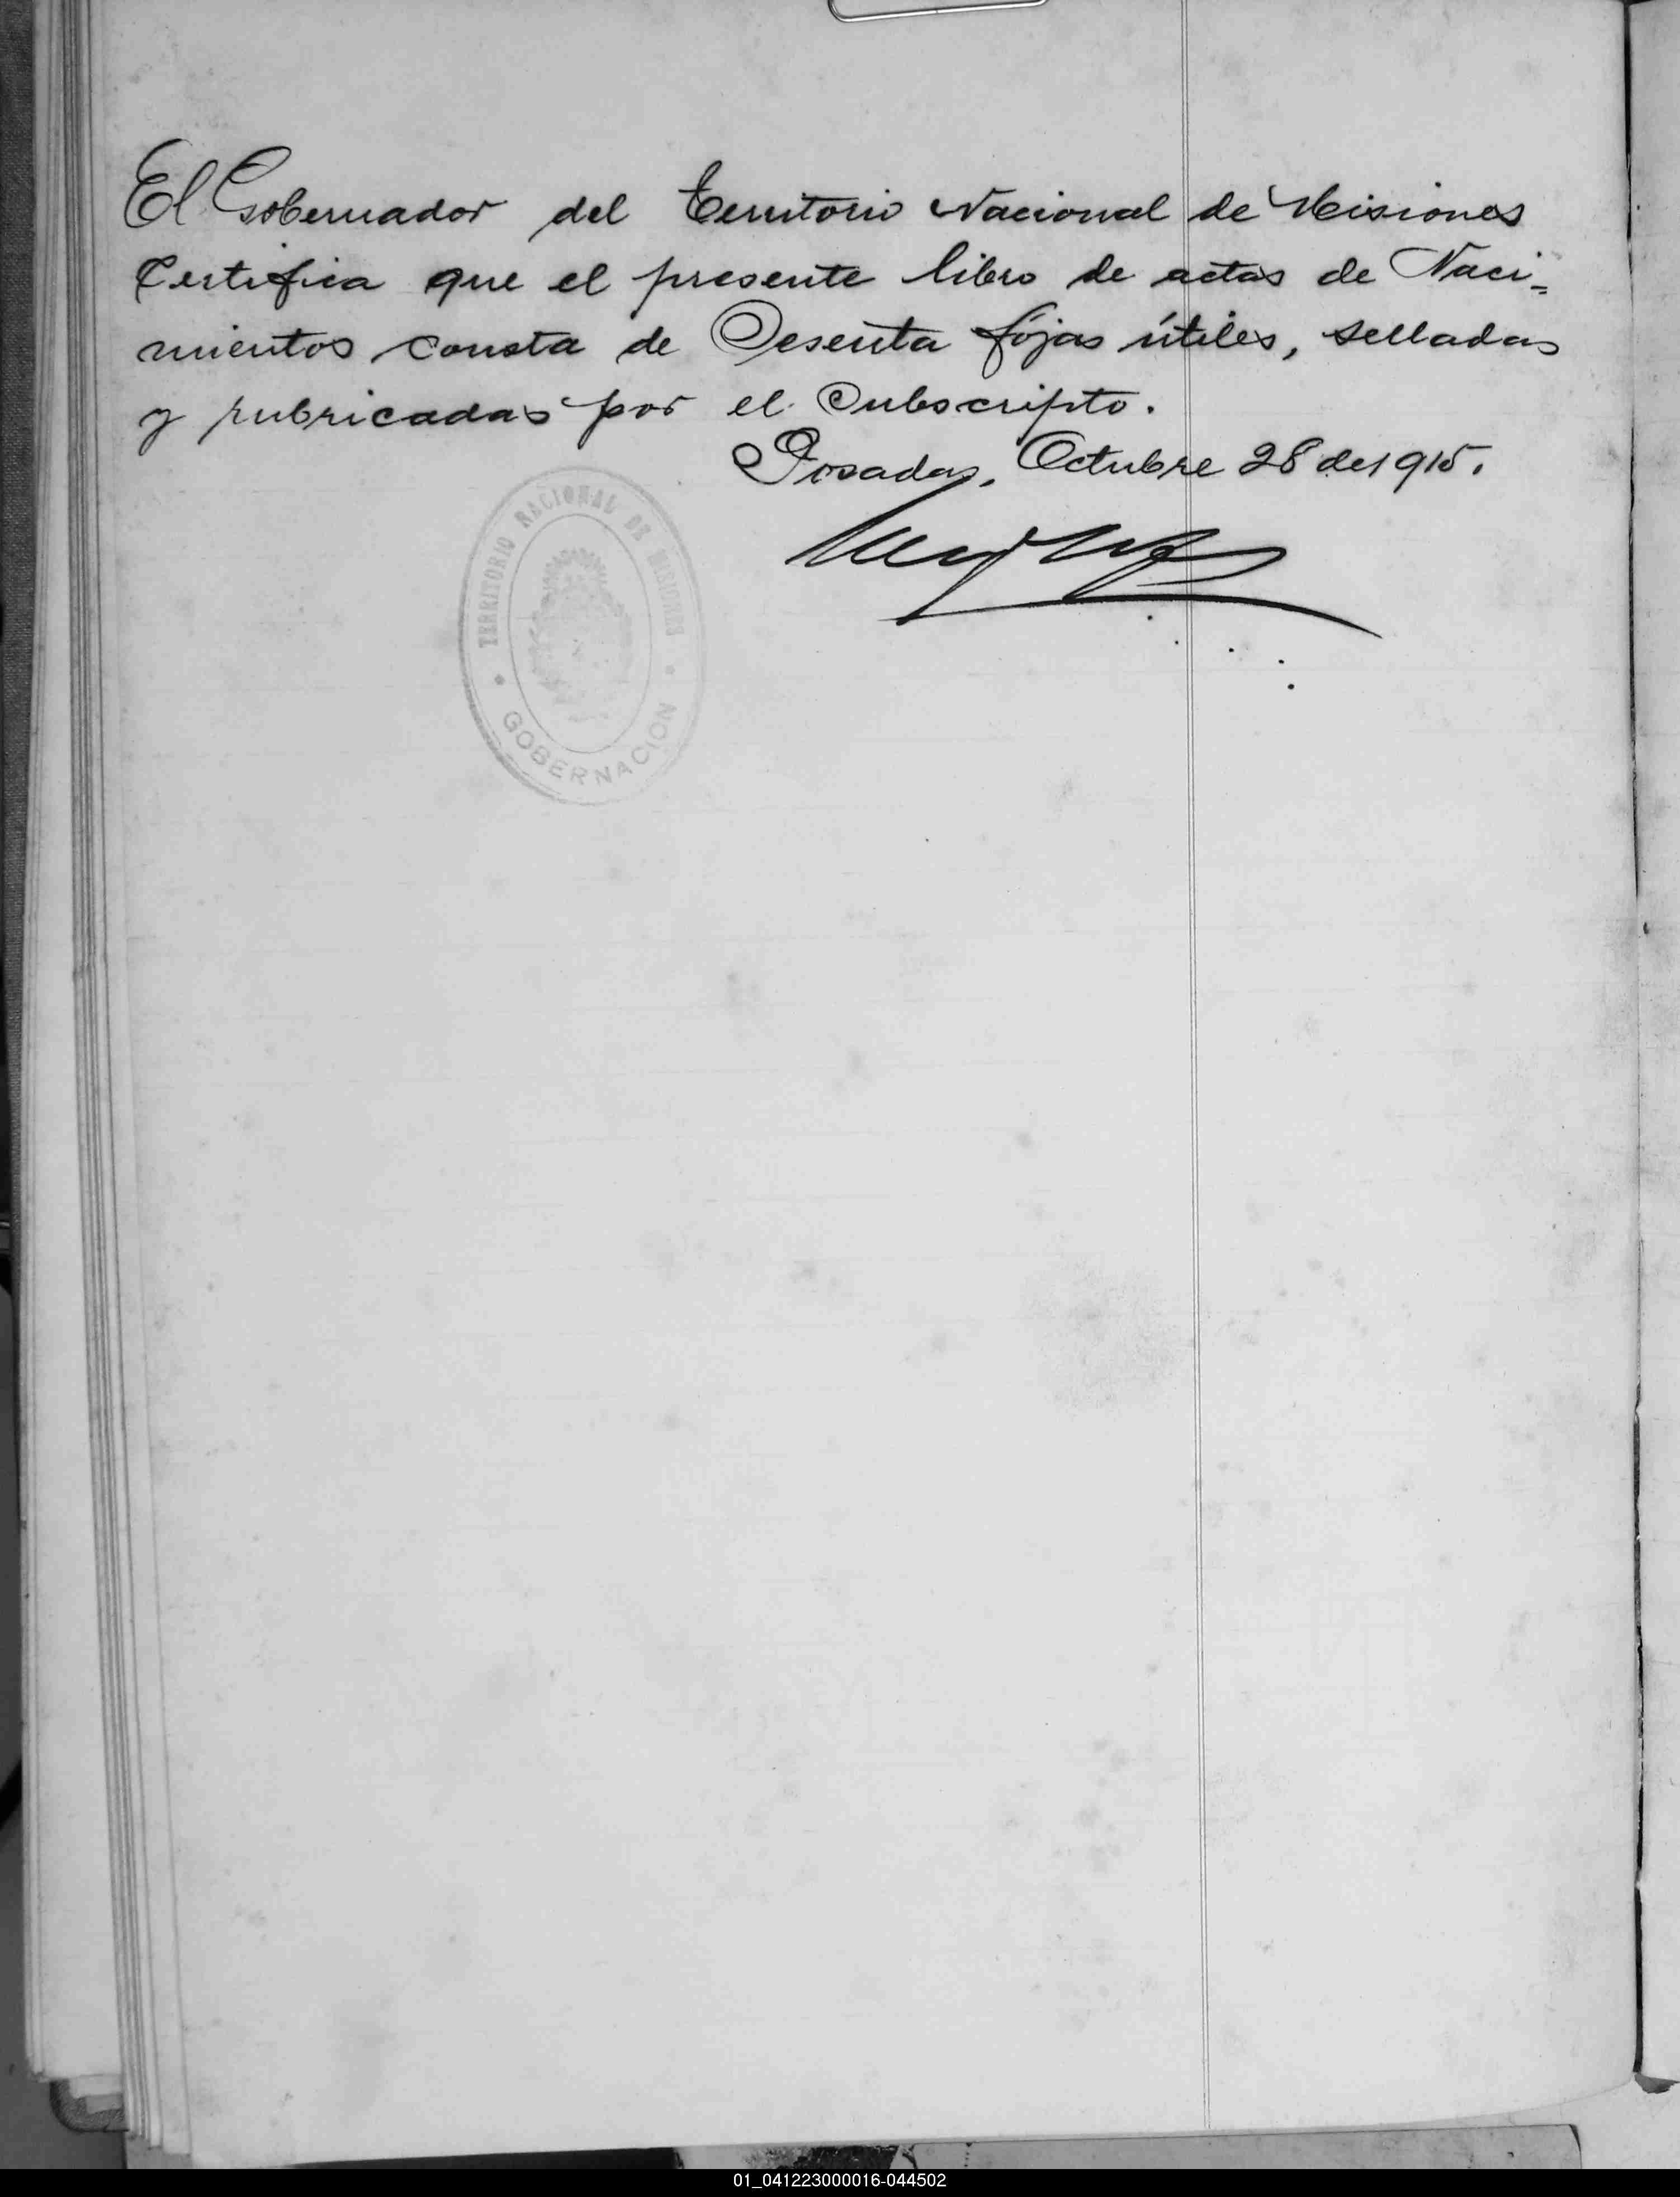 El Gobernador del Territorio Nacional de Misiones
Certifica que el presente libro de actas de Naci=
mientos consta de Sesenta fójas útiles, selladas
y rubricadas por el Subscripto.
Posadas, Octubre 28 de 1915.
TERRITORIO NACIONAL DE MISIONES
GOBERNACION
01_041223000016-044502